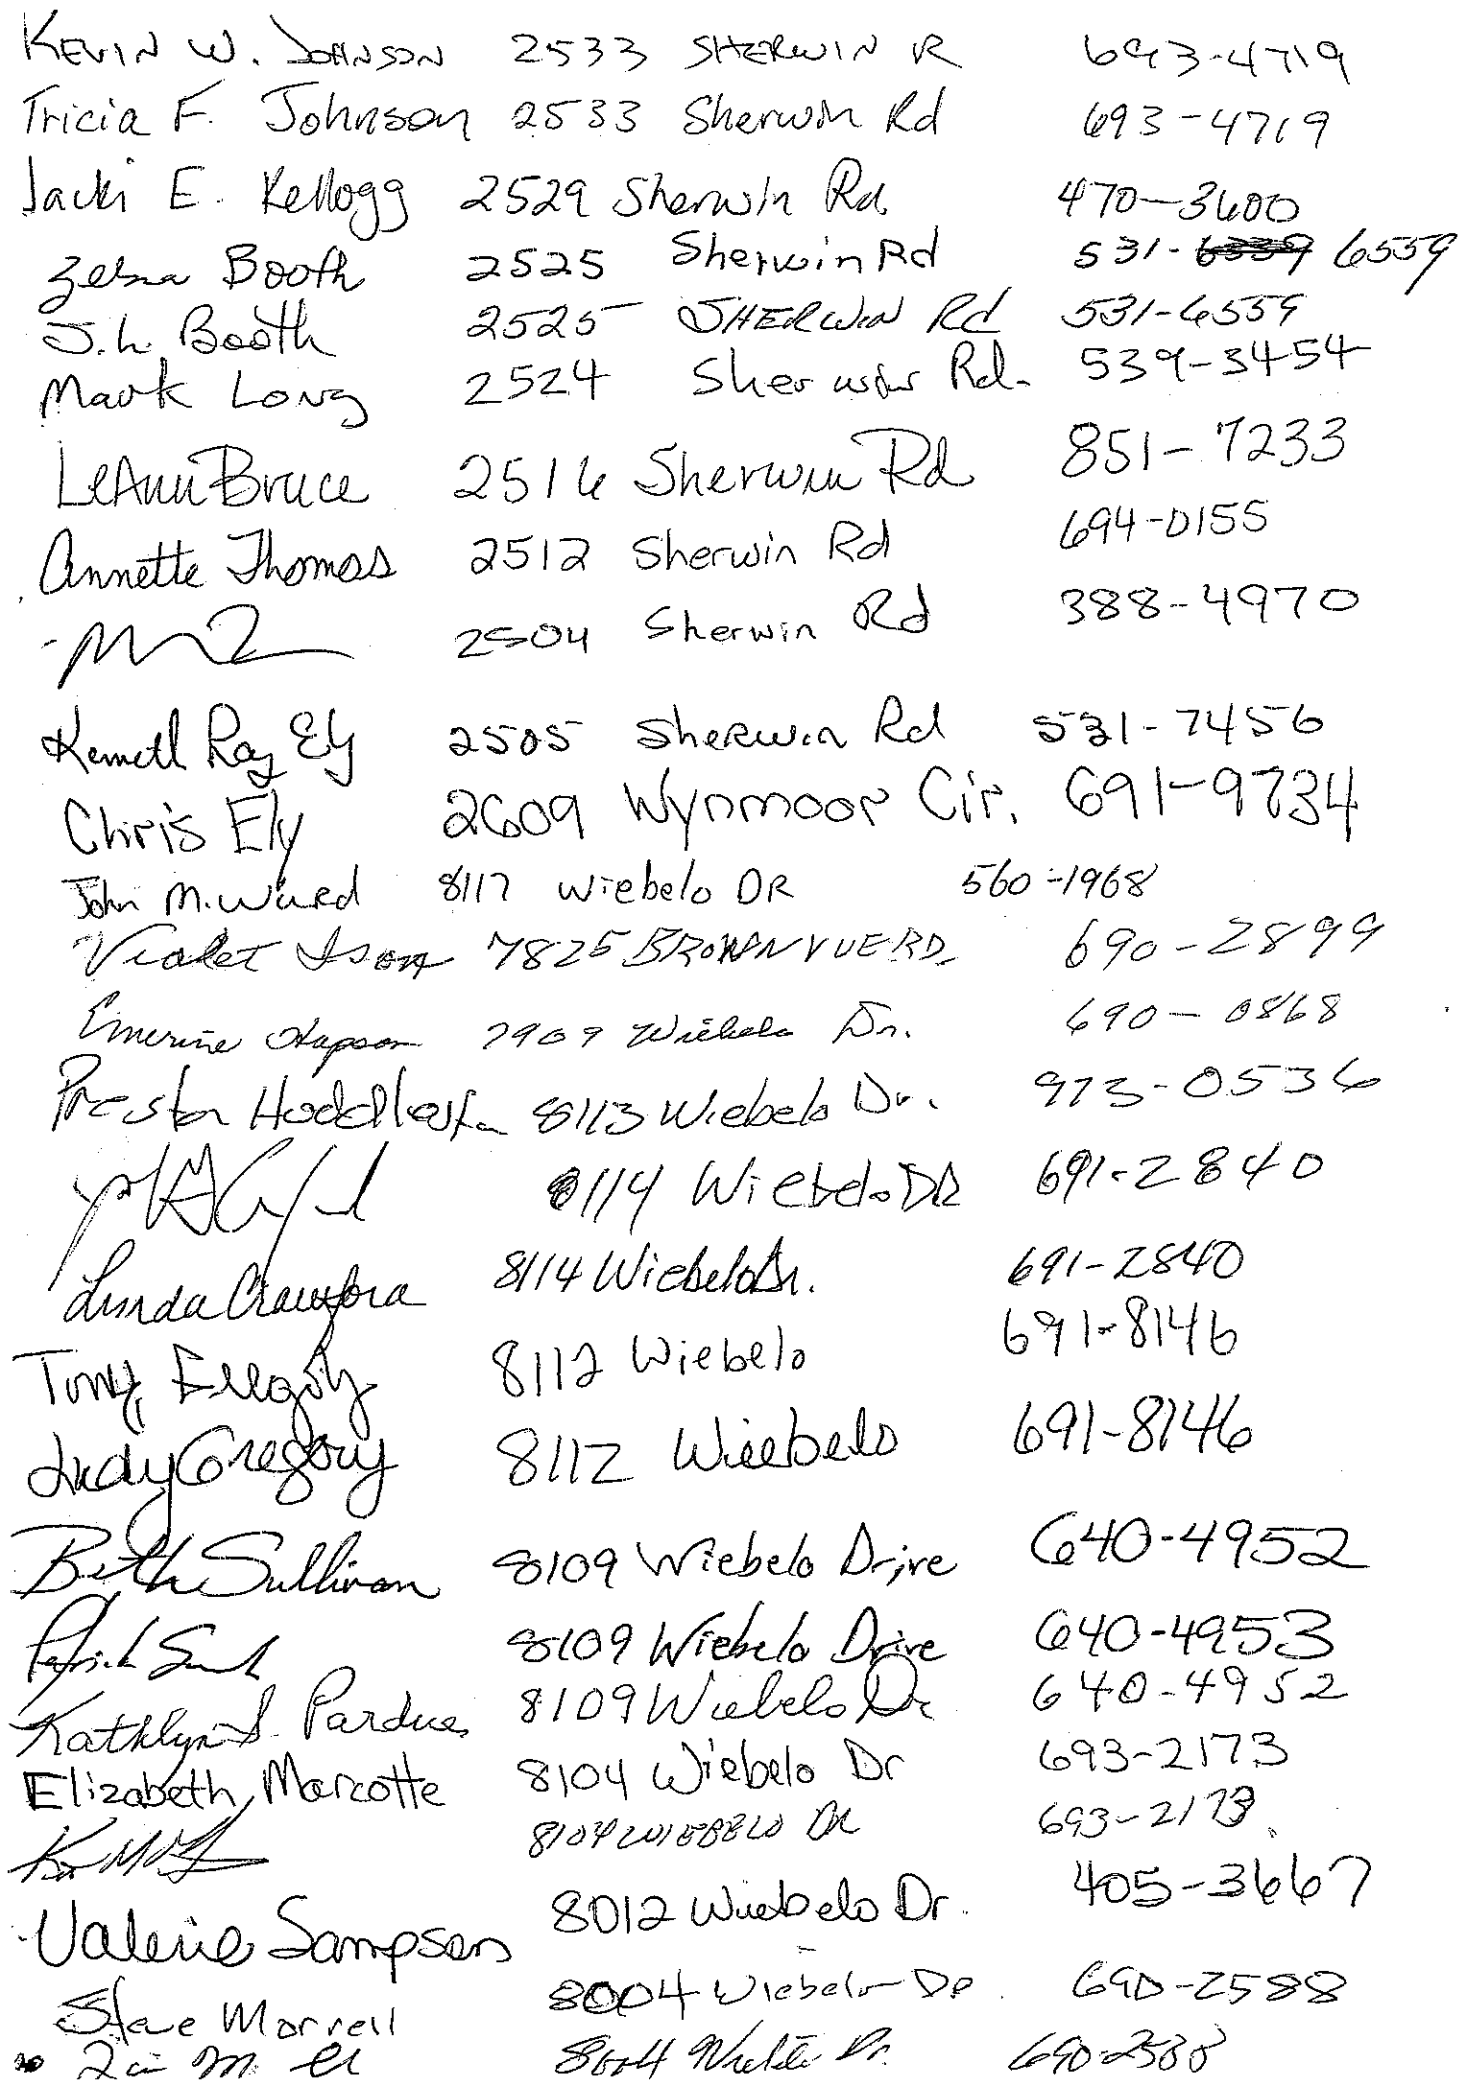 KEVIN W. JOHNSON 2533 SHERWIN R 693-4719
Tricia F. Johnson 2533 Sherwin Rd 693-4719
Jacki E. Kellogg 2529 Sherwin Rd. 470-3600
Booth 2525 Sherwin Rd 531- 6559
J.L. Booth 2525 SHERWIN Rd 531-6559
Mark Long 2524 Sherwin Rd. 539-3454
LeAnn Bruce 2516 Sherwin Rd 851-7233
Annette Thomas 2512 Sherwin Rd 694-0155
2504 Sherwin Rd 388-4970
Kenneth Ray Ely 2505 Sherwin Rd 531-7456
Chris Ely 2609 Wynmoor Cir. 691-9734
John M. Ward 8117 Wiebelo DR 560-1968
Violet Ison 7825 BROWNVUE RD. 690-2899
Emerine 7909 Wiebelo Dr. 690-0868
Preston Huddleston 8113 Wiebelo Dr. 973-0536
8114 Wiebelo DR 691-2840
Linda Crawford 8114 Wiebelo Dr. 691-2840
Tony 8112 Wiebelo 691-8146
Judy Gregory 8112 Wiebelo 691-8146
Beth Sullivan 8109 Wiebelo Drive 640-4952
Patrick 8109 Wiebelo Drive 640-4953
Kathlyn S. Pardue 8109 Wiebelo Dr 640-4952
Elizabeth Marcotte 8104 Wiebelo Dr 693-2173
8104 WIEBELO DR 693-2173
Valerie Sampson 8012 Wiebelo Dr. 405-3667
Steve Morrell 8004 Wiebelo Dr 690-2588
8004 Dr. 690-2588